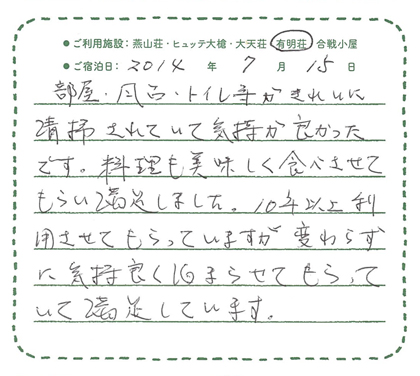 ●ご利用施設：燕山荘・ヒュッテ大槍・大天荘 有明荘 合戦小屋
●ご宿泊日： 2014 年 7 月 15 日
部屋・風呂・トイレ等がきれいに
清掃されていて気持が良かった
です。料理も美味しく食べさせて
もらい満足しました。10年以上利
用させてもらっていますが変わらず
に気持良く泊まらせてもらって
いて満足しています。